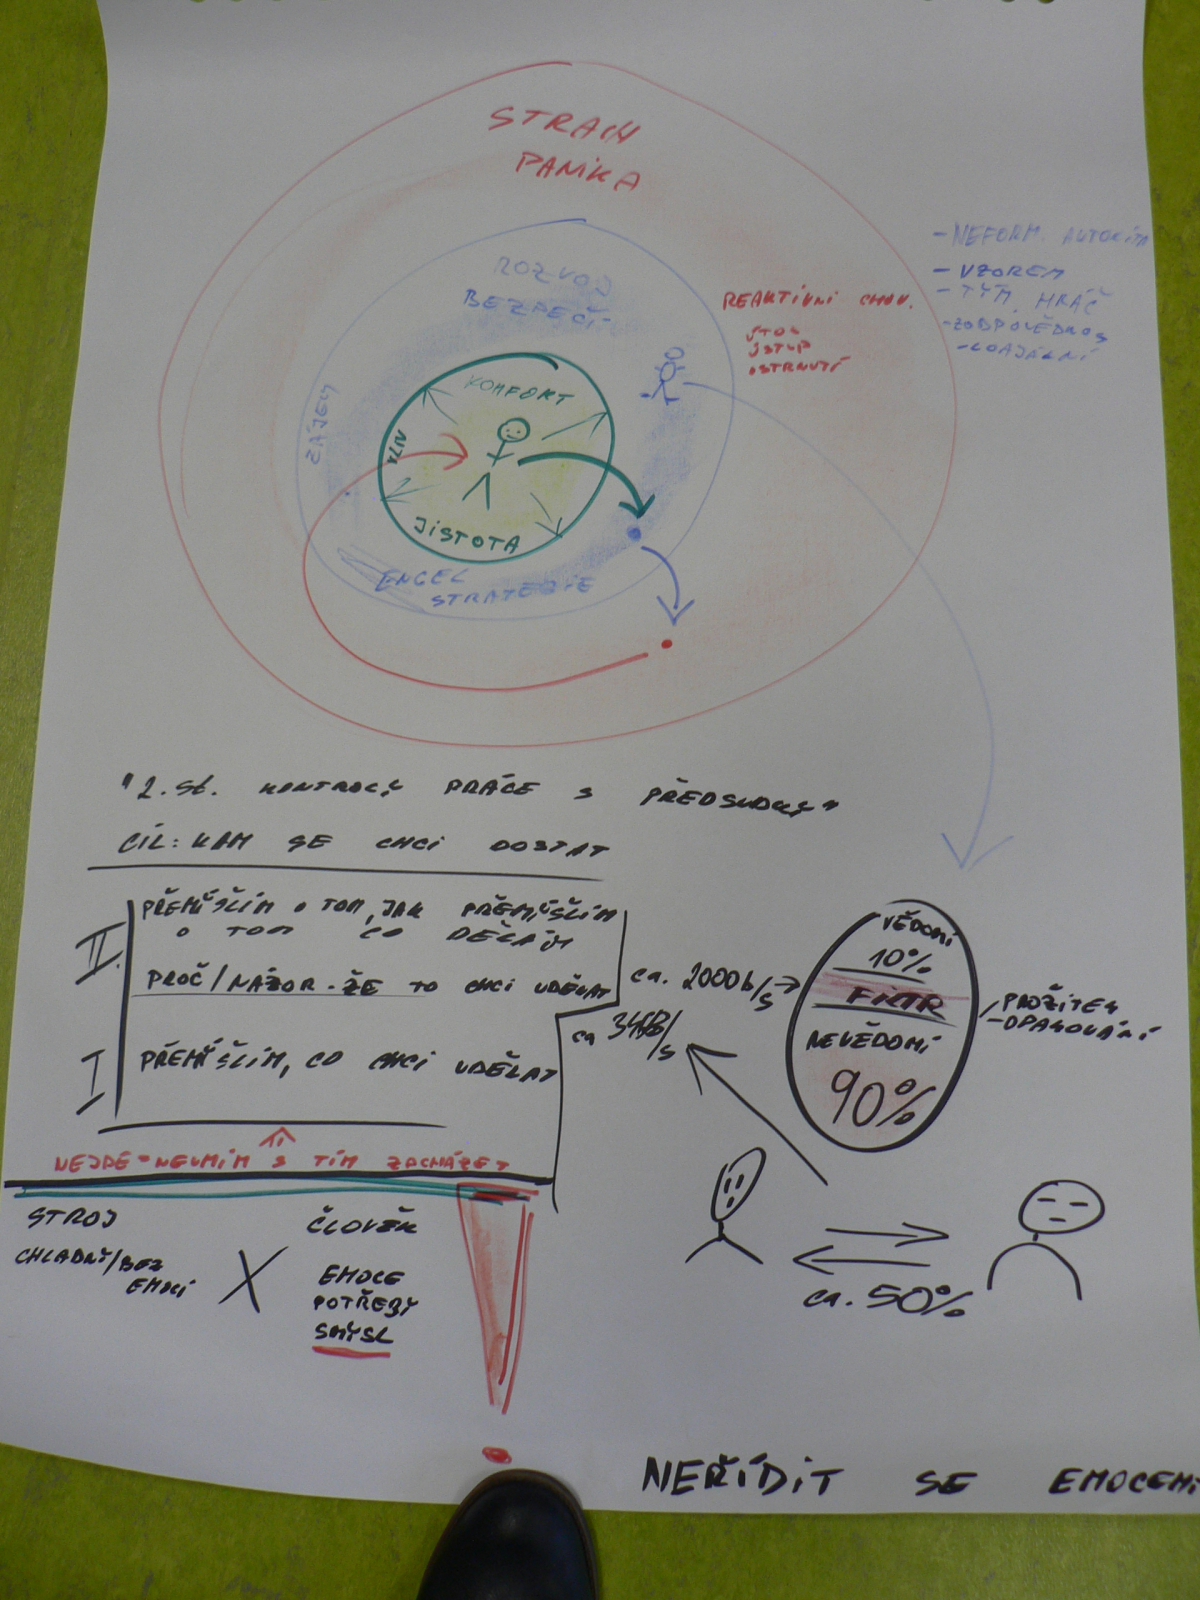 STRACH
PANIKA
ROZVOJ
BEZPEČÍ
- NEFORM. AUTORITA
- VZOREM
- TÝM. HRÁČ
- ZODPOVĚDNOS
- LOAJÁLNÍ
REAKTIVNÍ CHOV.
ÚTOK
ÚSTUP
USTRNUTÍ
KOMFORT
ZÁJEM
JISTOTA
STRATEGIE
"2. St. KONTROLY PRÁCE S PŘEDSUDKY"
CÍL: KAM SE CHCI DOSTAT
II.
PŘEMÝŠLÍM O TOM, JAK PŘEMÝŠLÍM
O TOM CO DĚLÁM
PROČ/NÁZOR - ŽE TO CHCI UDĚLAT
I
PŘEMÝŠLÍM, CO CHCI UDĚLAT
NEJDE = NEUMÍM S TÍM ZACHÁZET
STROJ
CHLADNÝ/BEZ
EMOCÍ
X
ČLOVĚK
EMOCE
POTŘEBY
SMYSL
ca. 2000b/s
VĚDOMÍ
10%
FILTR
NEVĚDOMÍ
90%
PROŽITEK
- OPAKOVÁNÍ
ca. 50%
NEŘÍDIT SE EMOCEMI